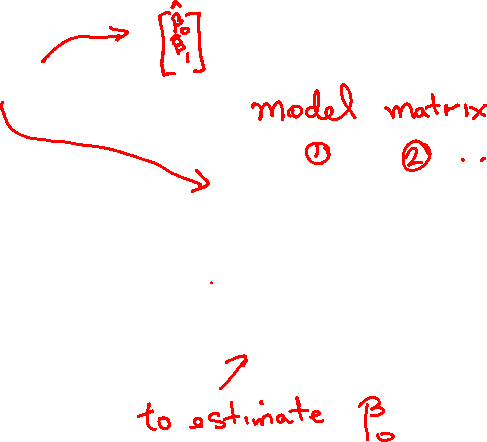 [β̂₀ β̂₁]
model matrix
① ② ..
to estimate β₀